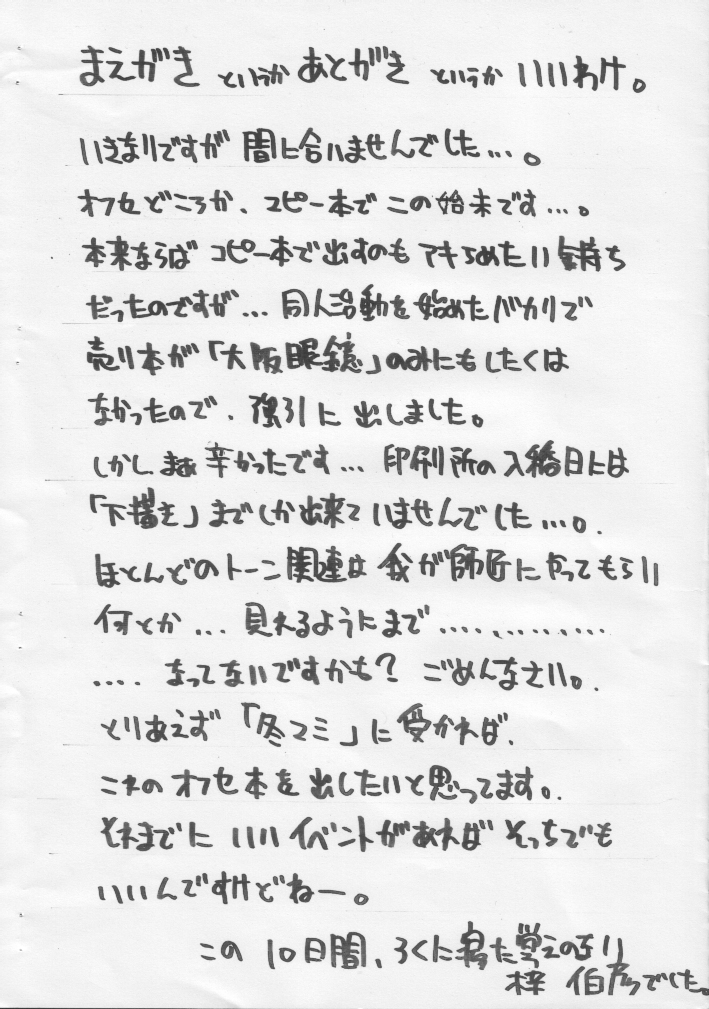 まえがき というか あとがき というか いいわけ。
いきなりですが 間に合いませんでした…。
オフセどころか、コピー本で この始末です…。
本来ならば コピー本で出すのも アキらめたい 気持ち
だったのですが… 同人活動を始めたバカリで
売り本が「大阪眼鏡」のみにもしたくは
なかったので、強引に 出しました。
しかし まあ 辛かったです… 印刷所の入稿日には
「下描き」までしか出来ていませんでした…。
ほとんどのトーン関連は 我が師匠に やってもらい
何とか … 見れるようにまで ……………
…. なってないですかも? ごめんなさい。
とりあえず 「冬コミ」に 受かれば、
これの オフセ本を 出したいと思ってます。
それまでに いい イベントがあれば そっちでも
いいんですけどねー。
この 10日間、ろくに寝た覚えのない
梓 伯 でした。